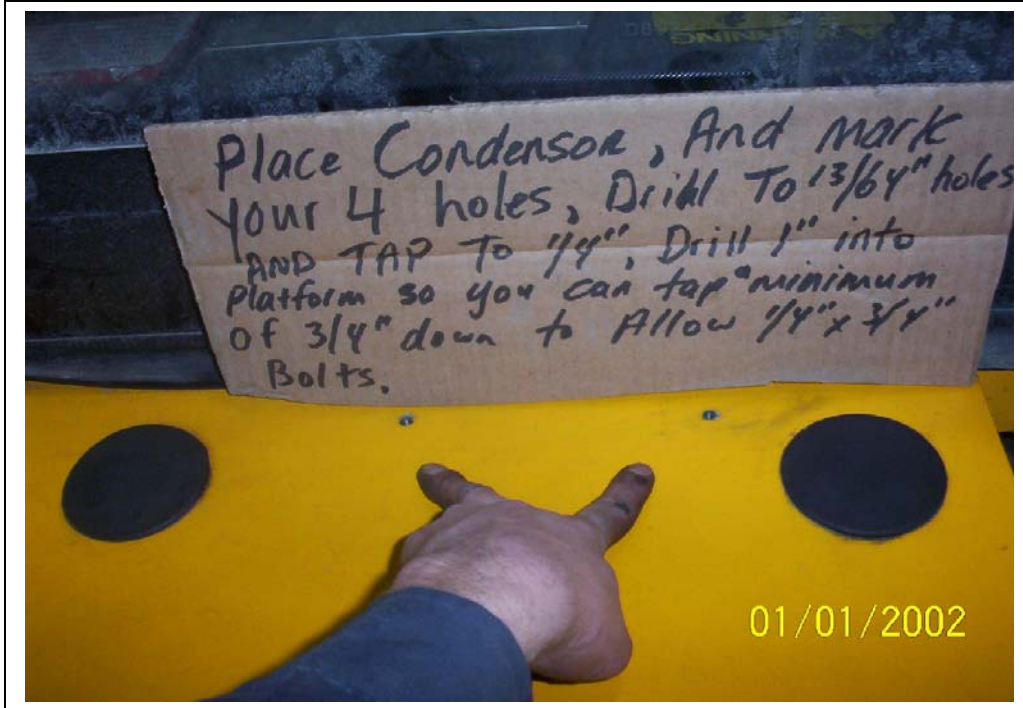 WARNING
Place Condensor, And mark
your 4 holes, Drill To 13/64" holes
AND TAP To 1/4", Drill 1" into
Platform so you can tap "minimum
Of 3/4" down to Allow 1/4" x 3/4"
Bolts.
01/01/2002